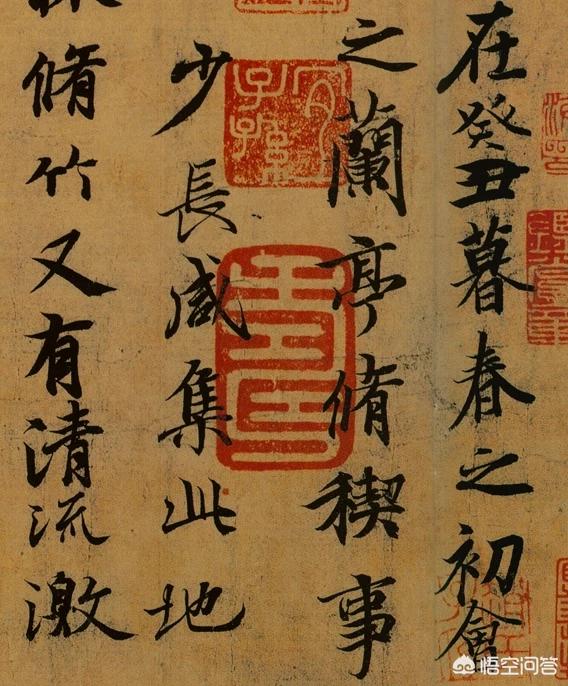 在癸丑暮春之初會
之蘭亭脩稧事
少長咸集此地
脩竹又有清流激
悟空问答